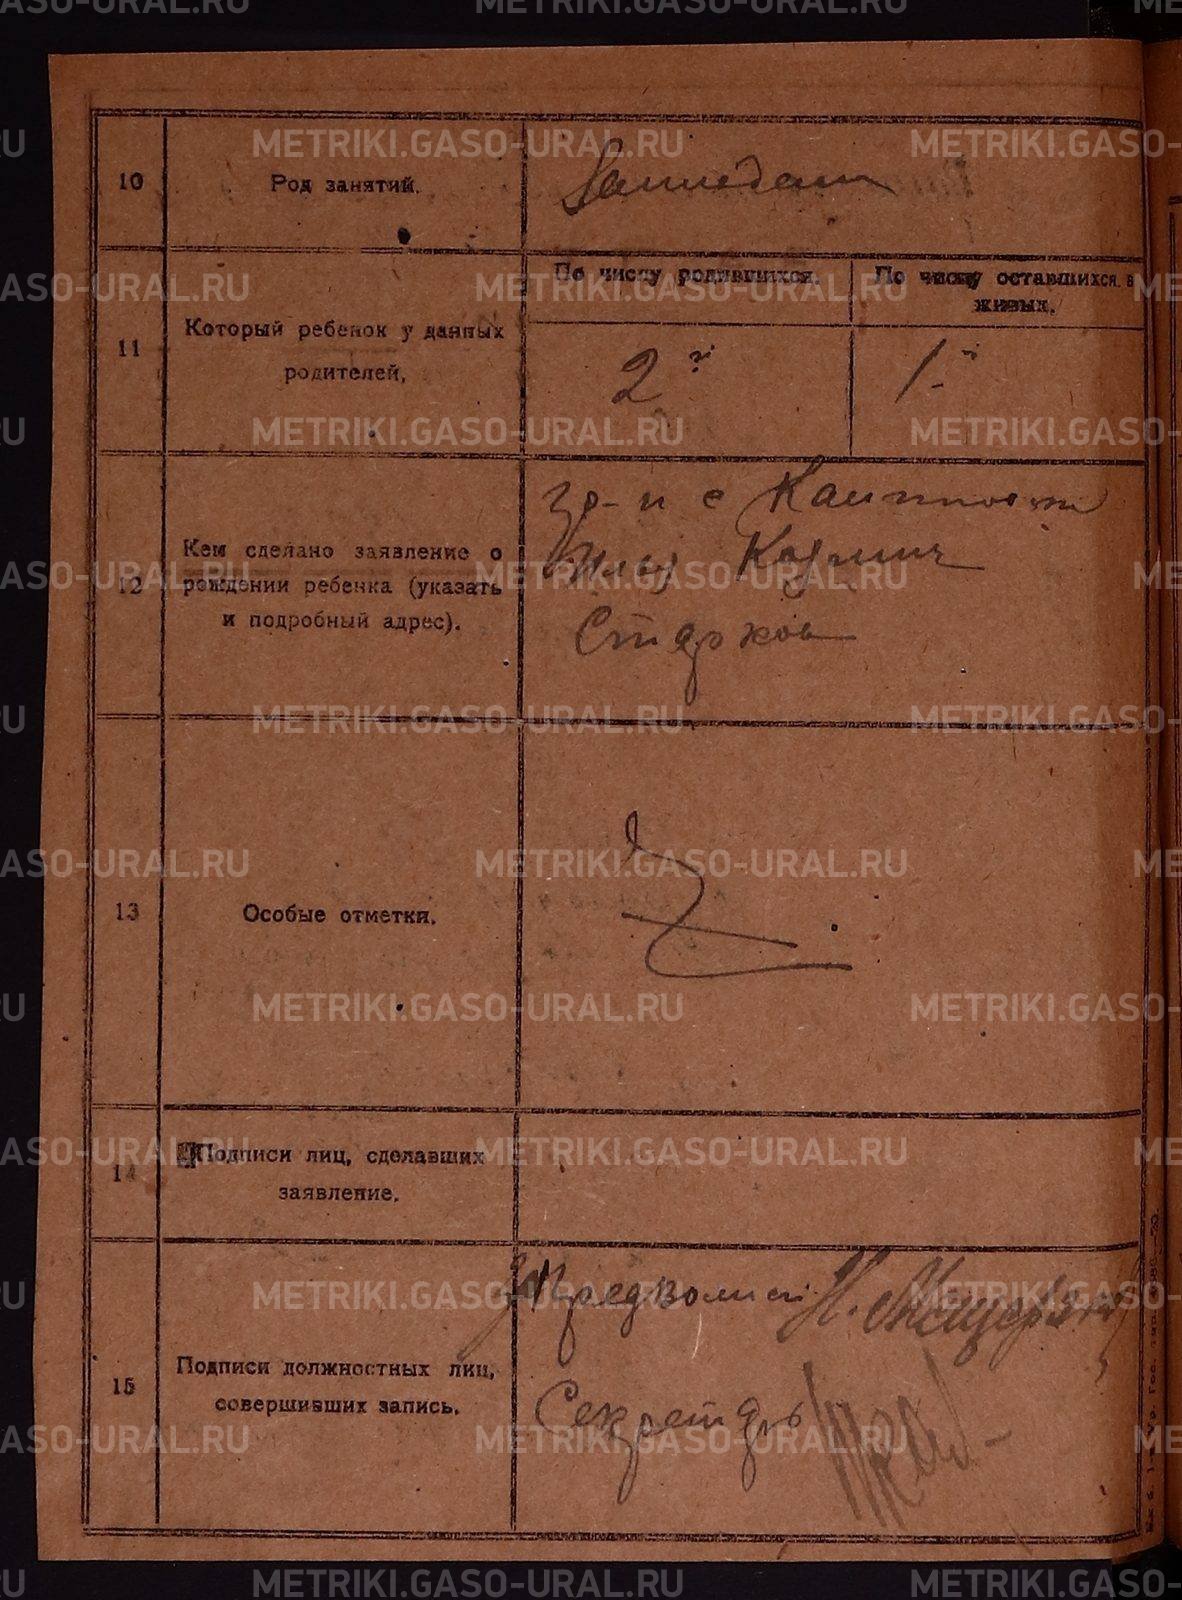 10
Род занятий.
11
Который ребенок у данных
родителей,
По числу родившихся.
По числу оставшихся в
живых.
2й
1-й
12
Кем сделано заявление о
рождении ребенка (указать
и подробный адрес).
гр-н с
Илья Кузмич
Старков
13
Особые отметки.
14
Подписи лиц, сделавших
заявление.
15
Подписи должностных лиц,
совершивших запись.
Н. Мещеряк
Секретарь
METRIKI.GASO-URAL.RU